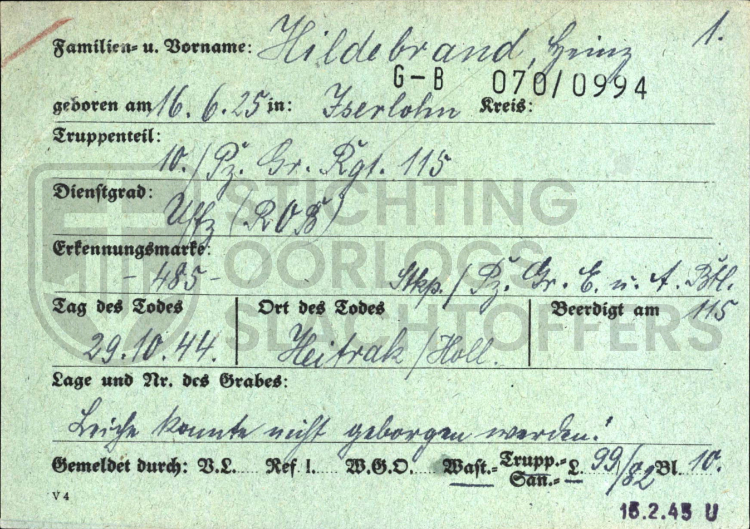 1.
Familien- u. Vorname: Hildebrand, Heinz
G-B 070/0994
geboren am 16.6.25 in: Iserlohn Kreis:
Truppenteil:
10./Pz. Gr. Rgt. 115
Dienstgrad:
Uffz (ROB)
Erkennungsmarke:
-485- Stkp./Pz. Gr. E. u. A. Btl. 115
Tag des Todes Ort des Todes Beerdigt am
29.10.44. Heitrak/Holl.
Lage und Nr. des Grabes:
Leiche konnte nicht geborgen werden!
Gemeldet durch: V.L. Ref I. W.G.O. Wast.- Trupp.- San.- L. 99/82 Bl. 10.
V 4
15.2.45 U
STICHTING
OORLOGS
SLACHTOFFERS